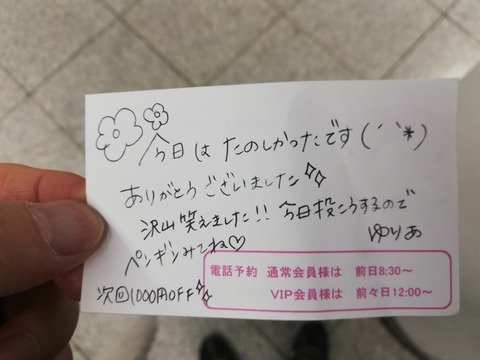 今日は たのしかったです(´｀*)
ありがとうございました✨
沢山笑えました!! 今日投こうするので
ペンギンみてね♡
ゆりあ
次回1000円OFF✨
電話予約 通常会員様は 前日8:30～
VIP会員様は 前々日12:00～